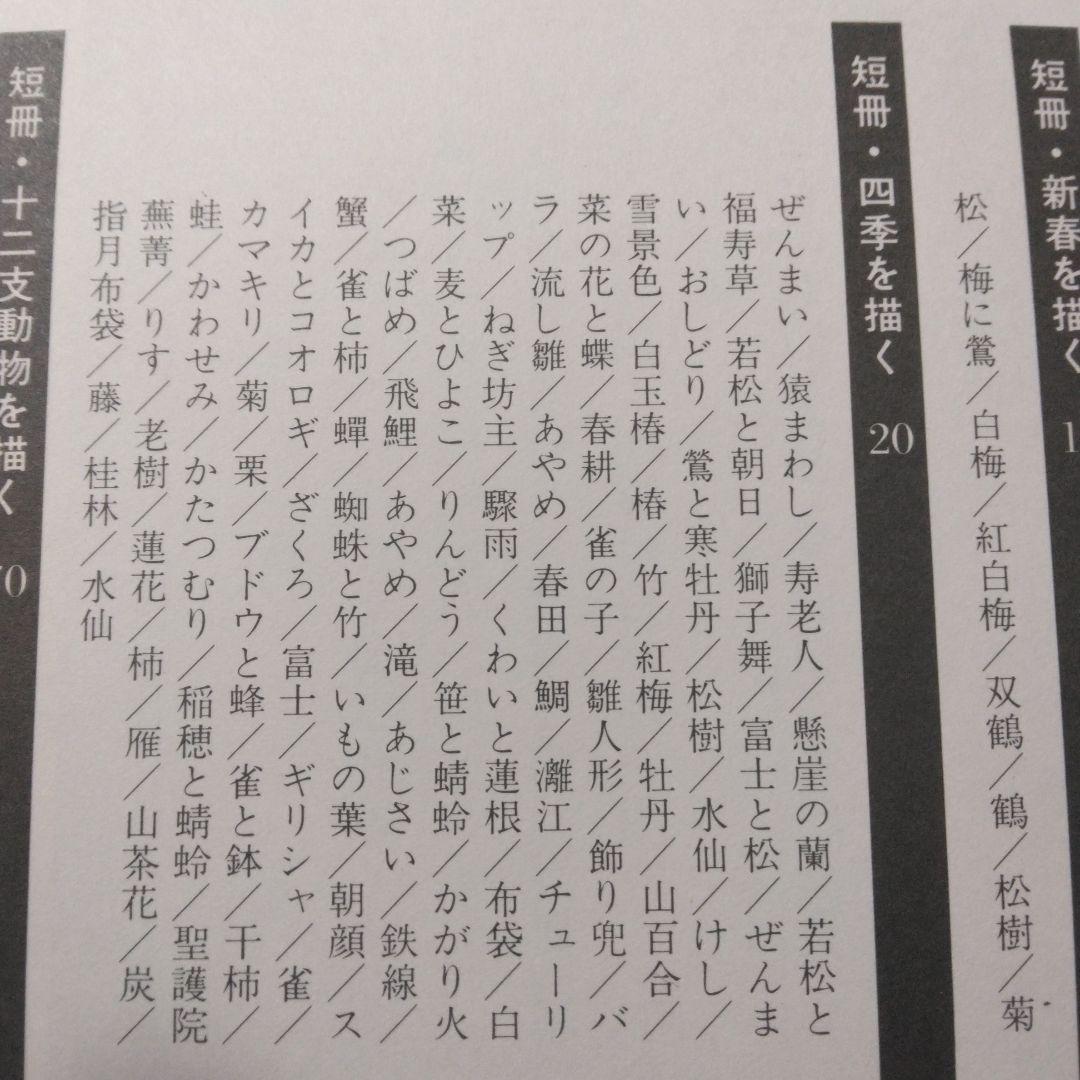 短冊・新春を描く 1
松／梅に鶯／白梅／紅白梅／双鶴／鶴／松樹／菊
短冊・四季を描く 20
ぜんまい／猿まわし／寿老人／懸崖の蘭／若松と
福寿草／若松と朝日／獅子舞／富士と松／ぜんま
い／おしどり／鶯と寒牡丹／松樹／水仙／けし／
雪景色／白玉椿／椿／竹／紅梅／牡丹／山百合／
菜の花と蝶／春耕／雀の子／雛人形／飾り兜／バ
ラ／流し雛／あやめ／春田／鯛／灕江／チューリ
ップ／ねぎ坊主／驟雨／くわいと蓮根／布袋／白
菜／麦とひよこ／りんどう／笹と蜻蛉／かがり火
／つばめ／飛鯉／あやめ／滝／あじさい／鉄線／
蟹／雀と柿／蟬／蜘蛛と竹／いもの葉／朝顔／ス
イカとコオロギ／ざくろ／富士／ギリシャ／雀／
カマキリ／菊／栗／ブドウと蜂／雀と鉢／干柿／
蛙／かわせみ／かたつむり／稲穂と蜻蛉／聖護院
蕪菁／りす／老樹／蓮花／柿／雁／山茶花／炭／
指月布袋／藤／桂林／水仙
短冊・十二支動物を描く 70